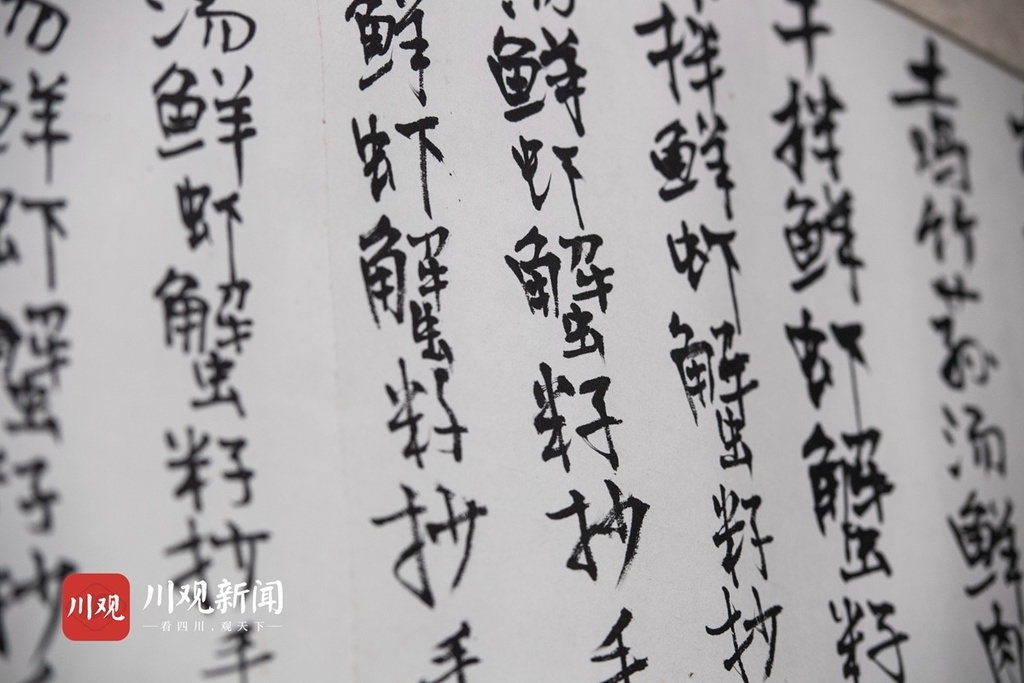 土鸡竹荪汤鲜肉
干拌鲜虾蟹籽
拌鲜虾蟹籽抄
鲜虾蟹籽抄手
鲜虾蟹籽抄手
汤鲜虾蟹籽抄手
鲜虾蟹籽抄
川观
川观新闻
看四川，观天下